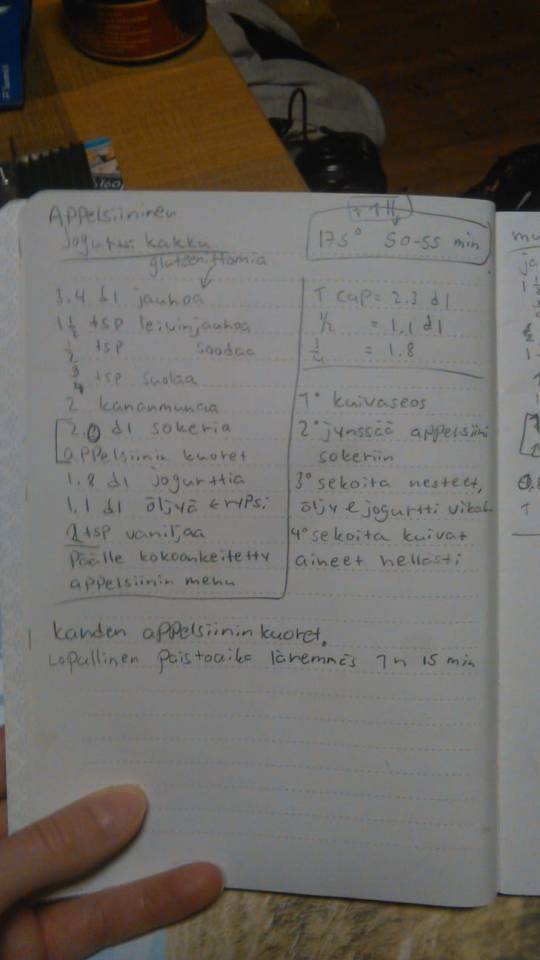 Appelsiininen
jogurtti kakku
gluteenittomia
3.4 dl jauhoa
1 1/2 tsp leivinjauhoa
1/2 tsp soodaa
3/4 tsp suolaa
2 kananmunaa
2.0 dl sokeria
appelsiinin kuoret
1.8 dl jogurttia
1.1 dl öljyä ← rypsi
2 tsp vaniljaa
Päälle kokoonkeitetty
appelsiinin mehu
+ 1 H
175° 50-55 min
1 cup = 2.3 dl
1/2 = 1.1 dl
1/4 = 1.8
1° kuivaseos
2° jynssää appelsiini
sokeriin
3° sekoita nesteet,
öljy & jogurtti
4° sekoita kuivat
aineet hellästi
kahden appelsiinin kuoret.
Lopullinen paistoaika lähemmäs 1h 15 min